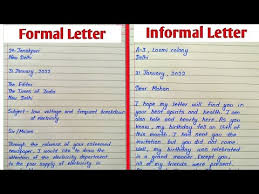 Formal Letter
54 Janakpuri
New Delhi
31 January, 2022
The Editor
The Times of India
New Delhi
Subject : Low voltage and frequent breakdown
of electricity
Sir/Ma'am
Through the columns of your esteemed
newspaper, I would like to draw the
attention of the electricity department
to the poor supply of electricity in
Informal Letter
A-3, Laxmi colony
Delhi
31 January, 2022
Dear Mohan
I hope my letter will find you in
your best spirits and health. I am
also hale and hearty here. As you
know, my birthday fell on
of this month. I had sent you the
invitation but you did not
come. My birthday was celebrated
in a grand manner. Except you,
all my friends